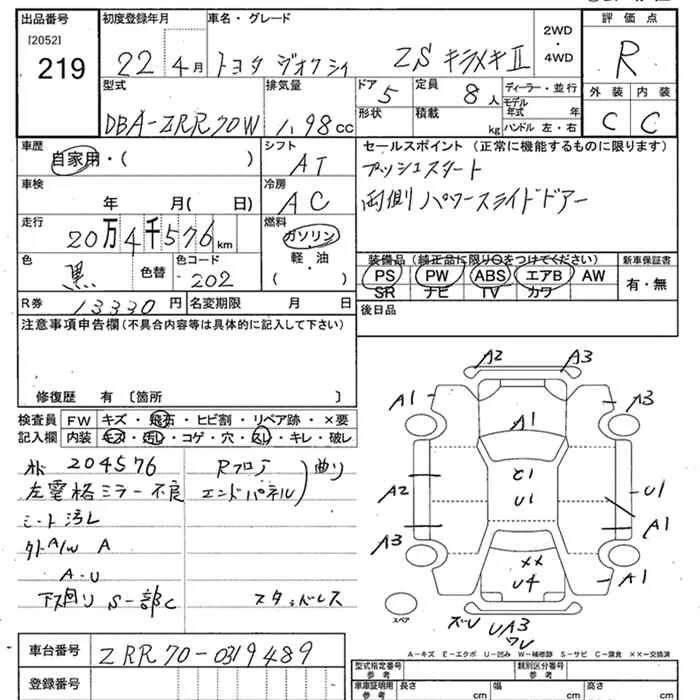 出品番号 初度登録年月 車名・グレード 2WD・4WD 評価点
[2052]
219 22年4月 トヨタ ZS キラメキⅡ R
型式 排気量 ドア 定員 ディーラー・並行 外装 内装
DBA-ZRR70W 1.98cc 5 8人 モデル年式 年 C C
形状 積載 kg ハンドル 左・右
車歴 シフト セールスポイント(正常に機能するものに限ります)
自家用・( ) AT プッシュスタート
車検 冷房 両側パワースライドドアー
年 月( 日) AC
走行 燃料
20万4千576km ガソリン
軽・油
( )
色 色替 色コード 装備品(純正品に限り○をつけてください) 新車保証書
黒 202 PS PW ABS エアB AW 有・無
SR ナビ TV カワ
R券 13330円 名変期限 月 日 後日品
注意事項申告欄(不具合内容等は具体的に記入して下さい)
修復歴 有 〔箇所 〕
検査員 FW キズ・飛石・ヒビ割・リペア跡・×要
記入欄 内装 キズ・汚レ・コゲ・穴・スレ・キレ・破レ
204576 Rフロア 曲り
左電格ミラー不良 エンドパネル
シート汚レ
A/W A
A・U
下回りS一部C スタッドレス
A2 A3
A1 A3
A1
U1
A2 U1
A1
A3
A1
××
U4
スペア
UA3
A-キズ E-エクボ U-凹み W-補修跡 S-サビ C-腐食 ××-交換済
車台番号 ZRR70-0319489
登録番号
型式指定番号 参考 類別区分番号 参考
車庫証明用 参考 長さ cm 幅 cm 高さ cm